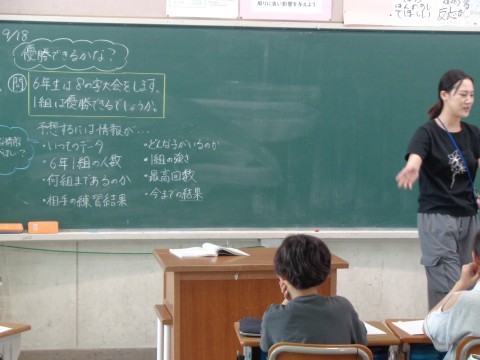 9/18
優勝できるかな？
問 6年生は8の字大会をします。
1組は優勝できるでしょうか。
予想するには情報が…
・いつのデータ
・6年1組の人数
・何組まであるのか
・相手の練習結果
・どんな子がいるのか
・1組の強さ
・最高回数
・今までの結果